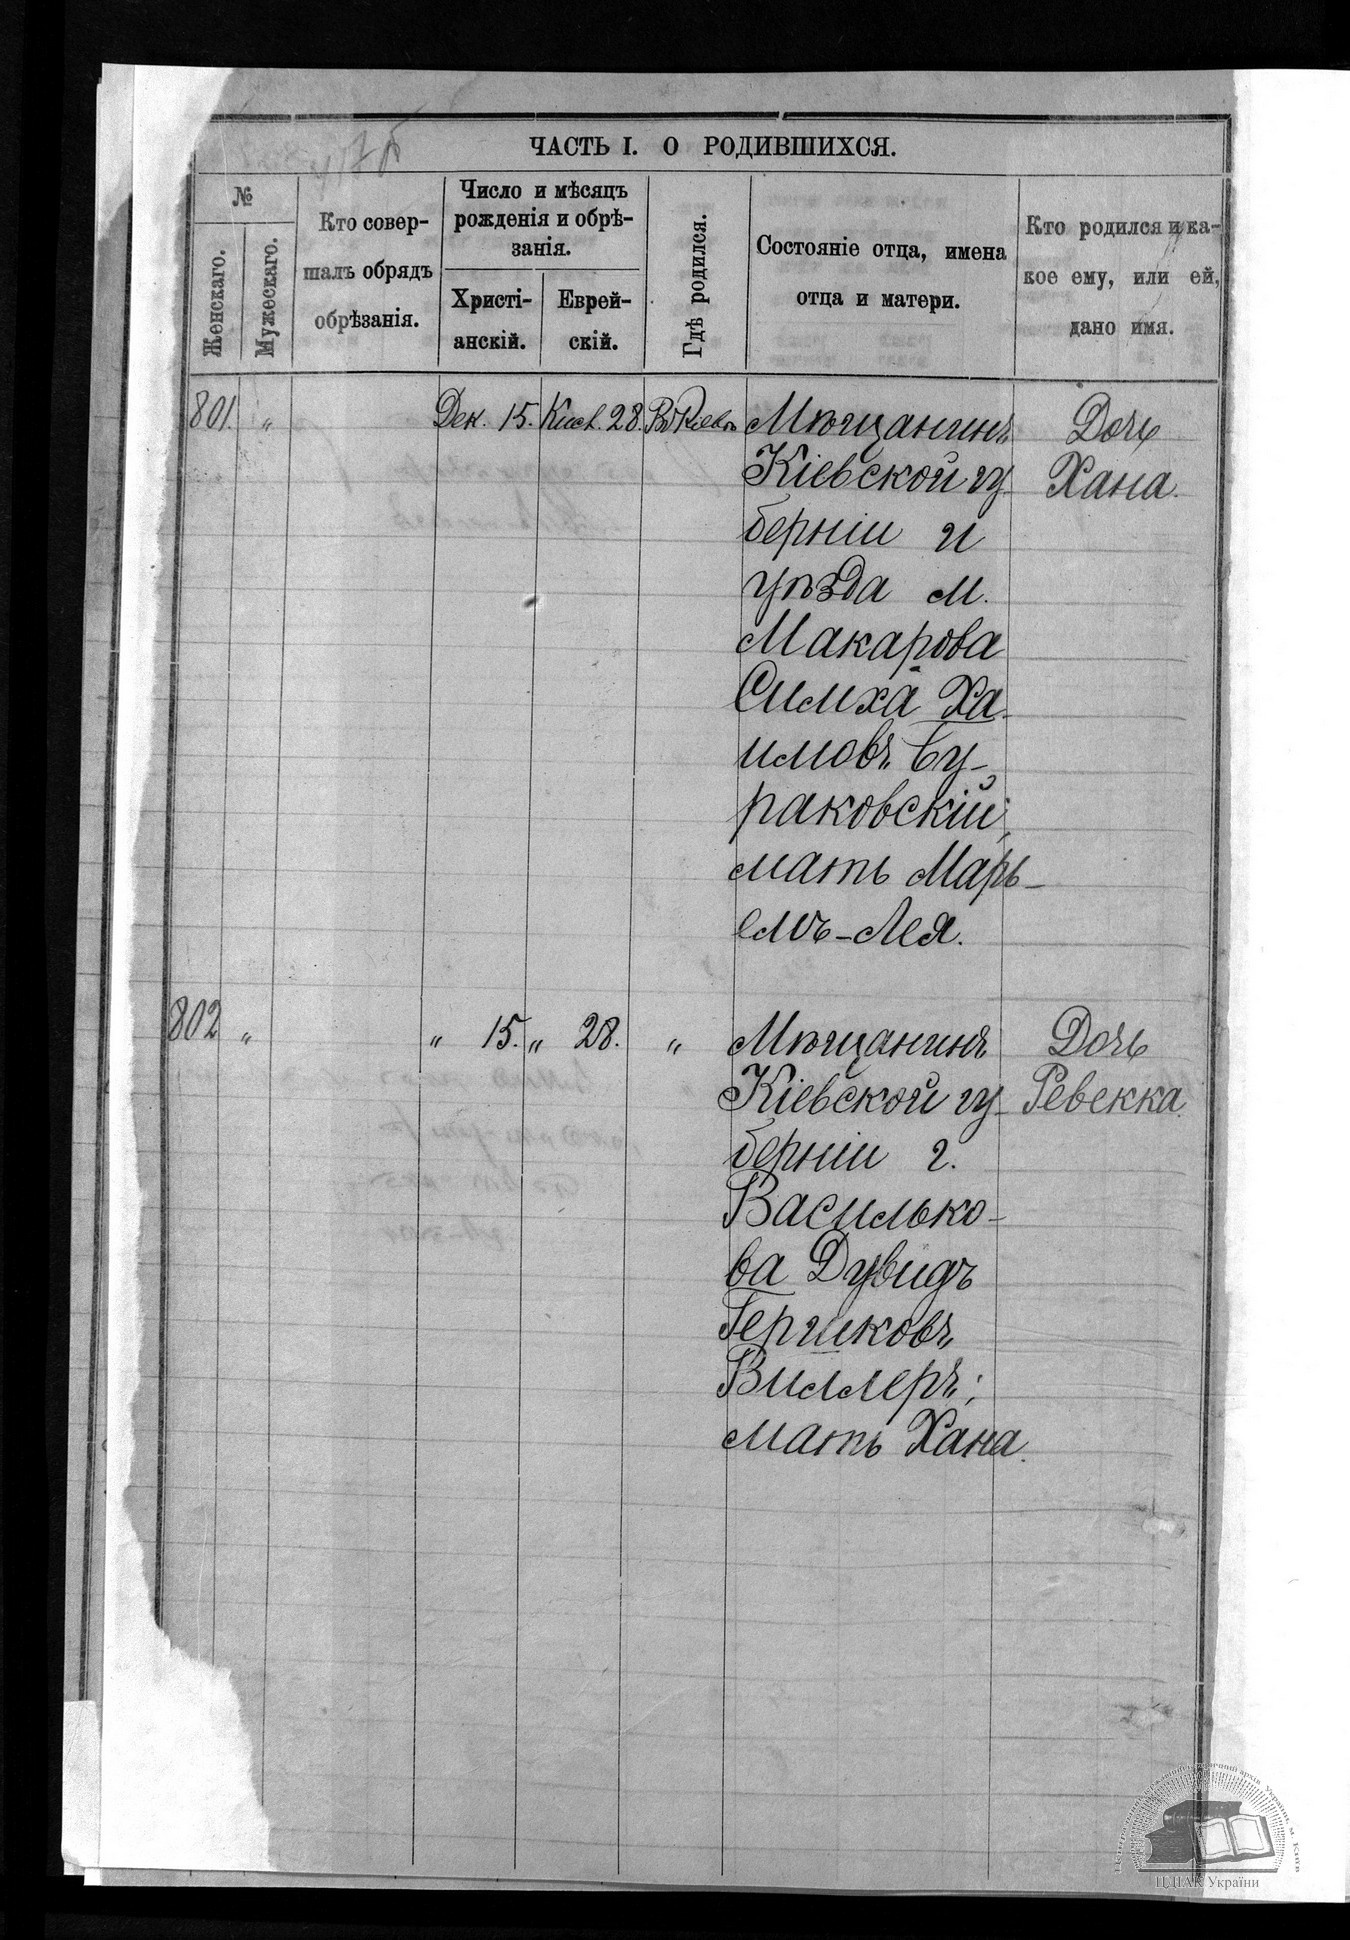 ЧАСТЬ I. О РОДИВШИХСЯ.
№
Женскаго.
Мужескаго.
Кто совер-
шалъ обрядъ
обрѣзанія.
Число и мѣсяцъ
рожденія и обрѣ-
занія.
Христі-
анскій.
Еврей-
скій.
Гдѣ родился.
Состояніе отца, имена
отца и матери.
Кто родился и ка-
кое ему, или ей,
дано имя.
801. " Дек. 15. Кисл. 28. Въ Кіевѣ Мѣщанинъ Дочь
Кіевской гу- Хана.
берніи и
уѣзда м.
Макарова
Симха Ха-
имовъ Бу-
раковскій;
мать Марь-
емъ-Лея.
802 " " 15. " 28. " Мѣщанинъ Дочь
Кіевской гу- Ревекка.
берніи г.
Василько-
ва Дувидъ
Гершковъ
Виллеръ;
мать Хана.
ЦДІАК України